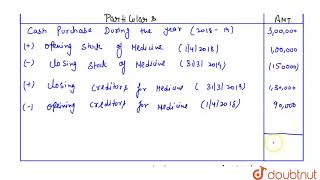 Particulars AMT.
Cash Purchase During the year (2018-19) 3,00,000
(+) Opening stock of Medicine (1/4/2018) 1,00,000
(-) closing stock of Medicine (31/3/2019) (150000)
(+) closing creditors for medicine (31/3/2019) 1,30,000
(-) opening creditors for Medicine (1/4/2018) 90,000
doubtnut